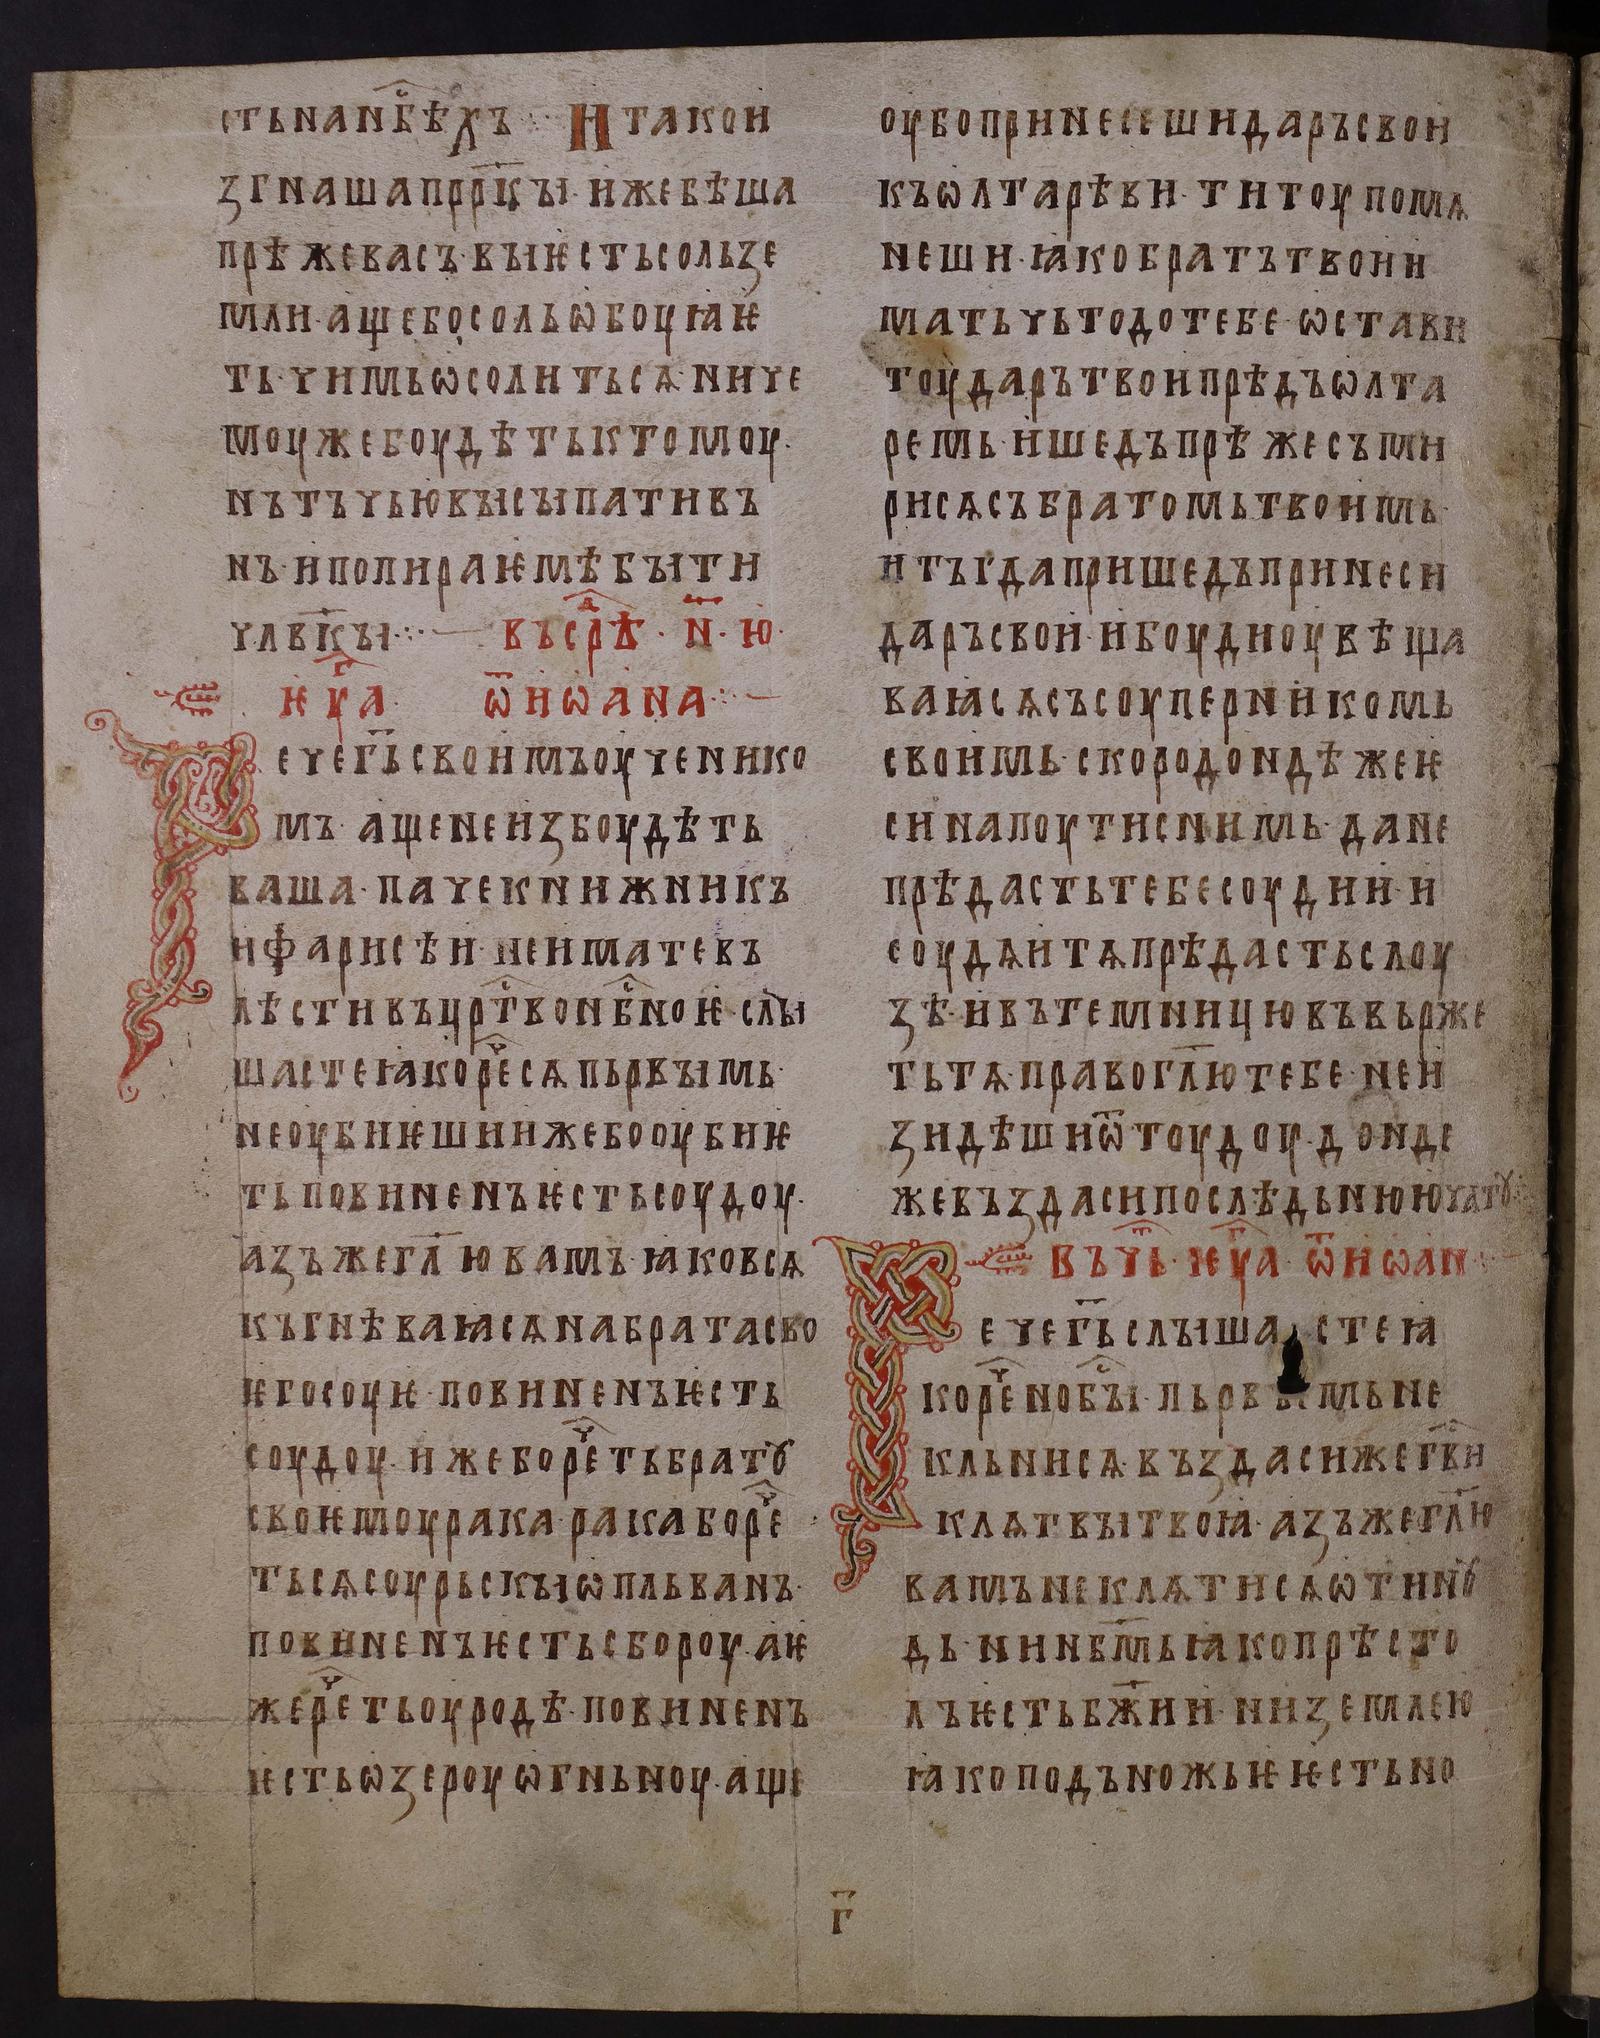 стьнанб҃сѣхъ ⁘ Итакои
згнашапррк҃ы · ижебѣша
прѣжевасъ · выѥстьсользе
мли · ащебосольѡбоуꙗѥ
ть · чимьѡсолитьсѧ · ниче
моужебоудѣтьктомоу ·
нътъчьювысыпативъ
нъ · ипопираѥмѣбыти
члвк҃ы ⁘ — въсрѣ҃д · н҃ · ю ·
ѥуа҃г ѿиѡана ⁘ —
ечег҃ьсвоимъоученико
мъ · ащенеизбоудѣть
ваша · пачекнижникъ
ифарисѣи · неиматевъ
лѣстивъцрт҃вонб҃сноѥ · слы
шастеꙗкоре҃чсѧпьрвымь ·
неоубиѥшиижебооубиѥ
тьповиненъѥстьсоудоу ·
азъжегл҃ювамъ · ꙗковсѧ
къгнѣваꙗсѧнабратасво
ѥгосоуѥ · повиненъѥсть
соудоу · ижеборе҃чтьбратꙋ
своѥмоурака · ракаборе҃ч
тьсѧсоурьскыѡпльванъ ·
повиненъѥстьсбороу · аѥ
жере҃чтьоуродѣ · повиненъ
ѥстьѡзероуѡгньноу · аще
оубопринесешидаръсвои
къѡлтарѣви · титоупомѧ
неши · ꙗкобратътвоии
матьчьтодотебе · ѡстави
тоударътвоипрѣдъѡлта
ремь · ишедъпрѣжесъми
рисѧсъбратомьтвоимь ·
итъгдапришедъпринеси
даръсвои · ибоудиоувѣща
ваꙗсѧсъсоуперникомь
своимь · скородондѣжеѥ
синапоутиснимь · дане
прѣдастьтебесоудии · и
соудѧитѧпрѣдастьслоу
зѣ · ивътемницювъвьрже
тьтѧ · правогл҃ютебе · неи
зидѣшиѿтоудоу · донде
жевъздасипослѣдьнюючатꙋ ⁘
въч҃ь · ѥу҃а · ѿиѡан ⁘ —
ечег҃ьслышастеꙗ
коре҃чноб҃ы · пьрвымьне
кльнисѧ · въздасижег҃ви
клѧтвытвоꙗ · азъжегл҃ю
вамънеклѧтисѧѡтинꙋ
дь · нинбм҃ьꙗкопрѣсто
лъѥстьбж҃ии · низемлею
ꙗкоподъножьѥѥстьно
г҃